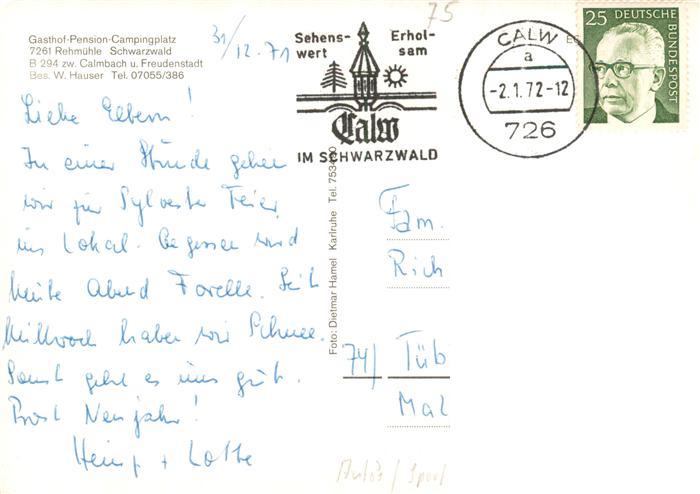 Gasthof-Pension-Campingplatz
7261 Rehmühle Schwarzwald
B 294 zw. Calmbach u. Freudenstadt
Bes. W. Hauser Tel. 07055/386
31/12.71
75
Sehens-
wert
Erhol-
sam
Calw
IM SCHWARZWALD
CALW
a
-2.1.72-12
726
25 DEUTSCHE
BUNDESPOST
Liebe Eltern!
In einer Stunde gehen
wir zur Sylvester Feier
ins Lokal. Gegessen wird
heute Abend Forelle. Seit
Mittwoch haben wir Schnee.
Sonst geht es uns gut.
Prost Neujahr!
Heinz + Lotte
Foto: Dietmar Hamel Karlruhe Tel.
Fam.
Rich
74/ Tüb
Mal
Autos / Sport